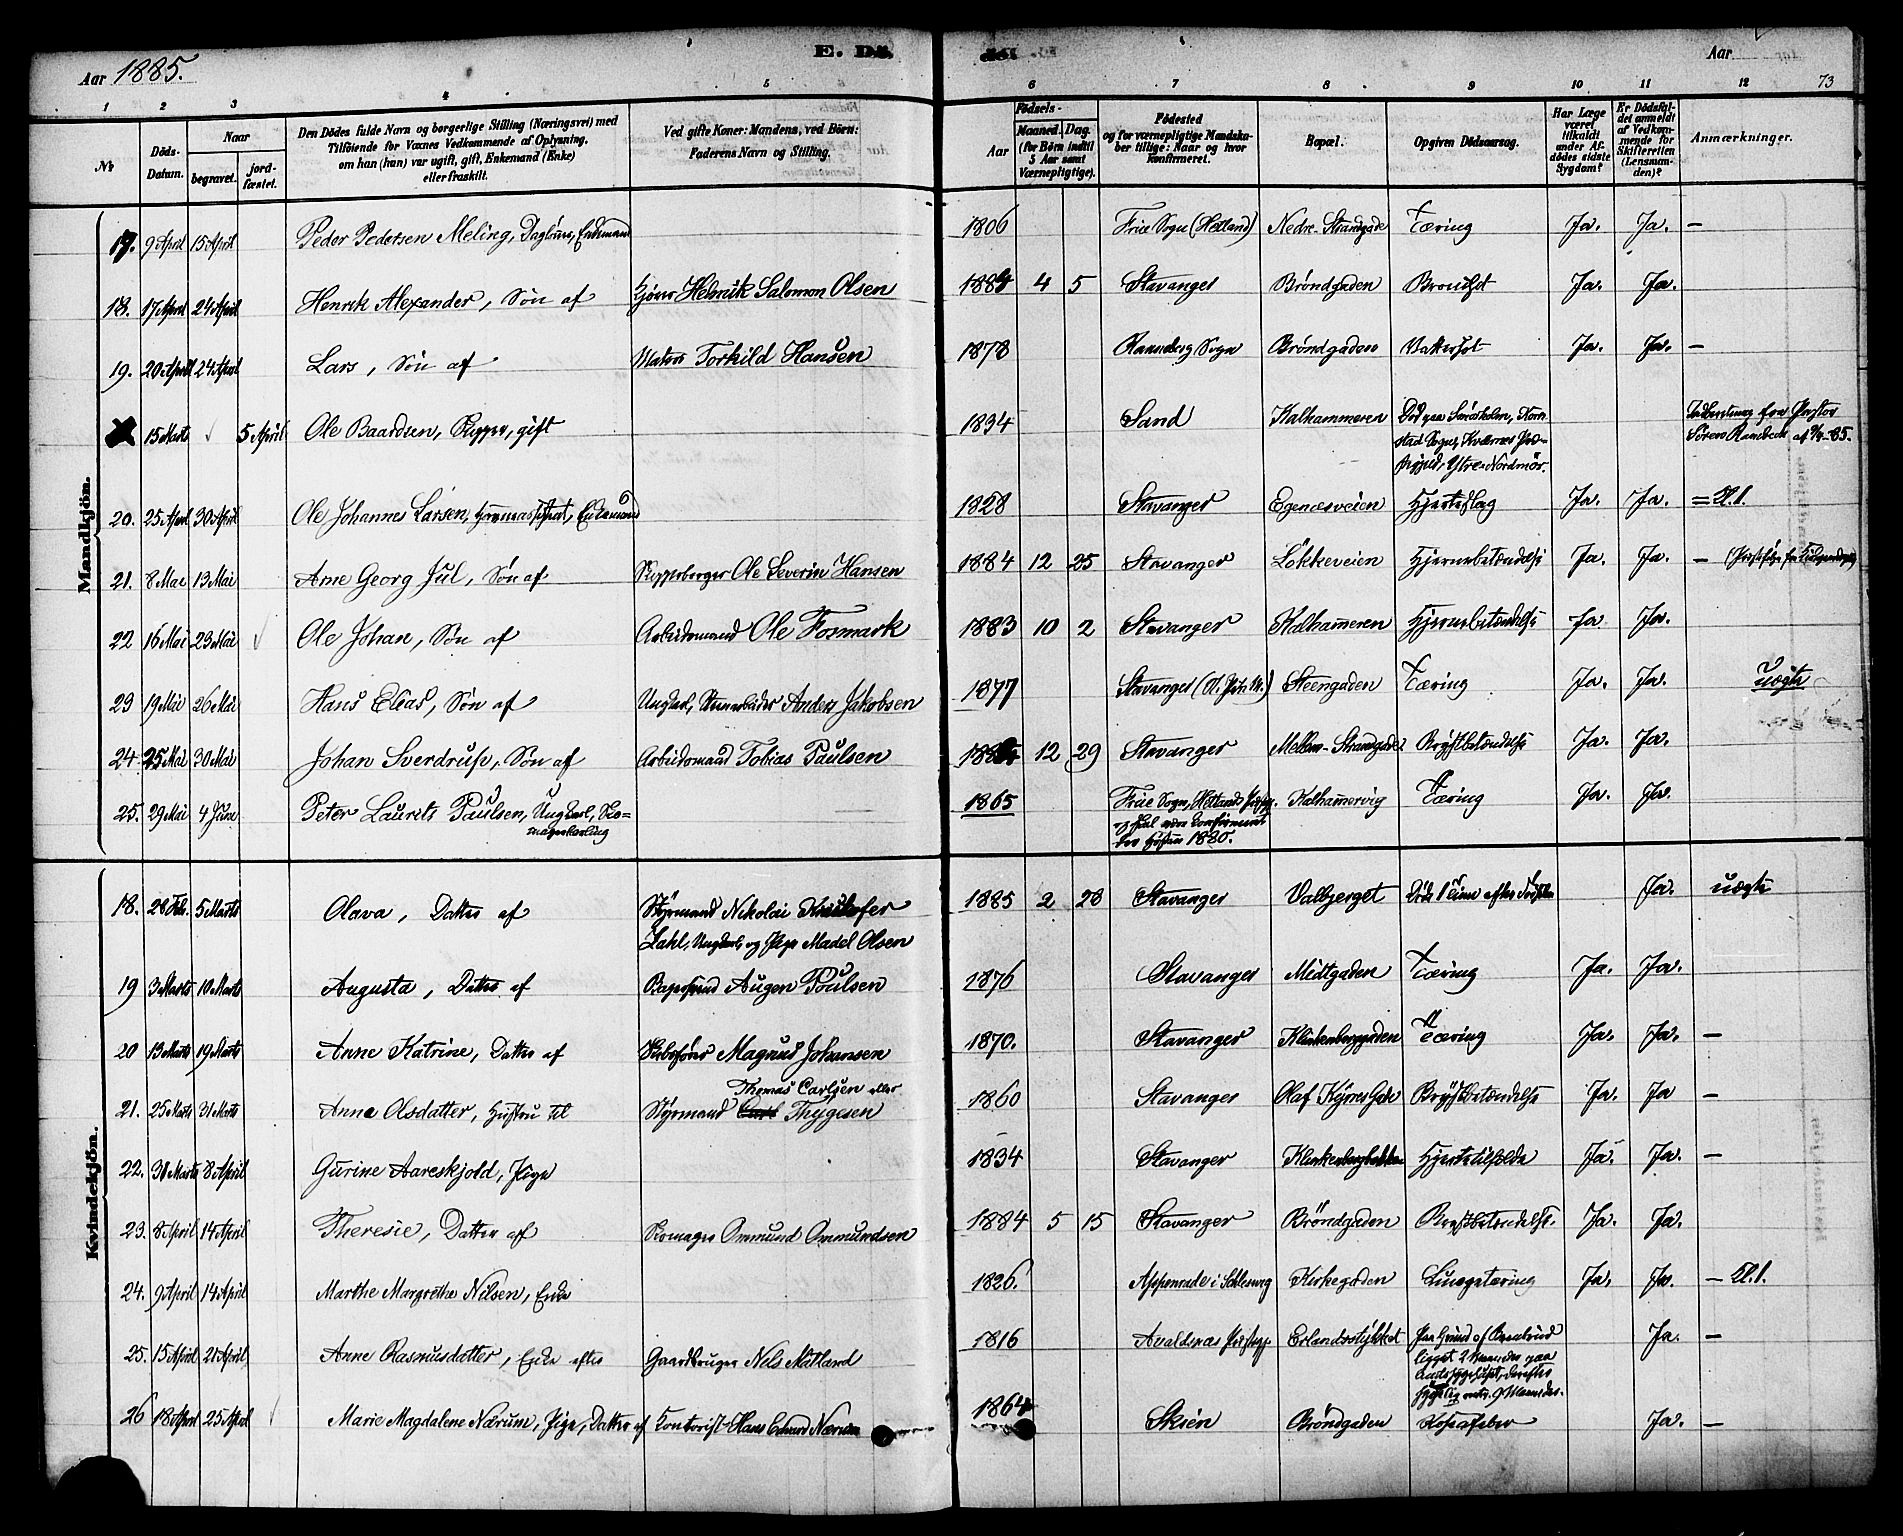 Aar 1885.
E. Dö
de.
Aar
73
1 2 3 4 5 6 7 8 9 10 11 12
№
Döds-Datum.
Naar
begravet.
jordfæstet.
Den Dödes fulde Navn og borgerlige Stilling (Næringsvei) med
Tilföiende for Voxnes Vedkommende af Oplysning,
om han (hun) var ugift, gift, Enkemand (Enke)
eller fraskilt.
Ved gifte Koner: Mandens, ved Börn:
Faderens Navn og Stilling.
Födsels-
Aar
Maaned. Dag.
(for Börn indtil
5 Aar samt
Værnepligtige).
Födested
og for værnepligtige Mandskaber
tillige: Naar og hvor
konfirmeret.
Bopæl.
Opgiven Dödsaarsag.
Har Læge
været
tilkaldt
under Afdödes
sidste
Sygdom?
Er Dödsfaldet
anmeldt
af Vedkommende
for
Skifteretten
(Lensmanden)?
Anmærkninger.
Mandkjön.
17. 9 April 15 April Peder Pedersen Meling, Enkemand 1806 Frue Sogn (Hetland) Nedre Strandgade Tæring Ja. Ja. —
18. 17 April 24 April Henrik Alexander, Søn af Henrik Salomon Olsen 1884 4 5 Stavanger Brøndgaden Ja. Ja.
19. 20 April 24 April Lars, Søn af Torkild Hansen 1878 Sogn Brøndgaden Ja. Ja. —
15 Marts 5 April Ole Baardsen, gift 1834 Sand Kalhammeren Ytre-Nordmør.
20. 25 April 30 April Ole Johannes Larsen, Enkemand 1828 Stavanger Egenæsveien Hjerteslag Ja. Ja.
21. 8 Mai 13 Mai Arne Georg Jul, Søn af Ole Severin Hansen 1884 12 25 Stavanger Løkkeveien Hjernebetændelse Ja. Ja. —
22 16 Mai 23 Mai Ole Johan, Søn af Arbeidsmand Ole Fosmark 1883 10 2 Stavanger Kalhammeren Hjernebetændelse Ja Ja.
23 19 Mai 26 Mai Hans Elias, Søn af Ungkarl, Anders Jakobsen 1877 Stavanger Steengaden Tæring Ja. Ja. uægte
24 25 Mai 30 Mai Johan Sverdrup, Søn af Arbeidsmand Tobias Paulsen 12 29 Stavanger Mellem-Strandgade Brystbetændelse Ja. Ja.
25. 29 Mai 4 Juni Peter Laurits Paulsen, Ungkarl, Skomagerlærling 1865 Frue Sogn, Hetlands Kalhammervig Tæring Ja. Ja.
Høsten 1880.
Kvindekjön.
18. 28 Feb. 5 Marts Olava, Datter af Styrmand Nikolai Kristofer
Ungkarl, og Pige Madel Olsen 1885 2 28 Stavanger Valbjerget Døde 1 Time efter Fødselen Ja. uægte
19 3 Marts 10 Marts Augusta, Datter af Augen Poulsen 1876 Stavanger Midtgaden Tæring Ja. Ja.
20 13 Marts 19 Marts Anne Katrine, Datter af Skibsfører Magnus Johansen 1870. Stavanger Klinkenberggaden Tæring Ja. Ja. —
Thomas Carlsen eller
21. 25 Marts 31 Marts Anna Olsdatter, Hustru til Styrmand Thygesen 1860 Stavanger Olaf Kyrres Gade Brystbetændelse Ja. Ja —
22. 30 Marts 8 April Gurine Aareskjold, Pige 1834 Stavanger Klinkenbergbakken Hjertetilfælde Ja. Ja. —
23. 8 April 14 April Theresie, Datter af Skomager Ommund Ommundsen 1884 5 15 Stavanger Brøndgaden Brystbetændelse. Ja. Ja.
24. 9 April 14 April Marthe Margrethe Nilsen, Enke 1826. Appenrade i Schleswig Kirkegaden Lungetæring Ja. Ja. —
25. 15 April 21 April Anne Rasmusdatter, Enke efter Gaardbruger Nels Matland 1816 Avaldsnes Præstegj. Erlandsstykket Paa Grund af Benbrud
ligget 2 Maaneder paa
Ja. —
26 18 April 25 April Marie Magdalene Nærum, Pige, Datter af Kontorist Hans Edvard Nærum 1864 Skien Brøndgaden Ja. —